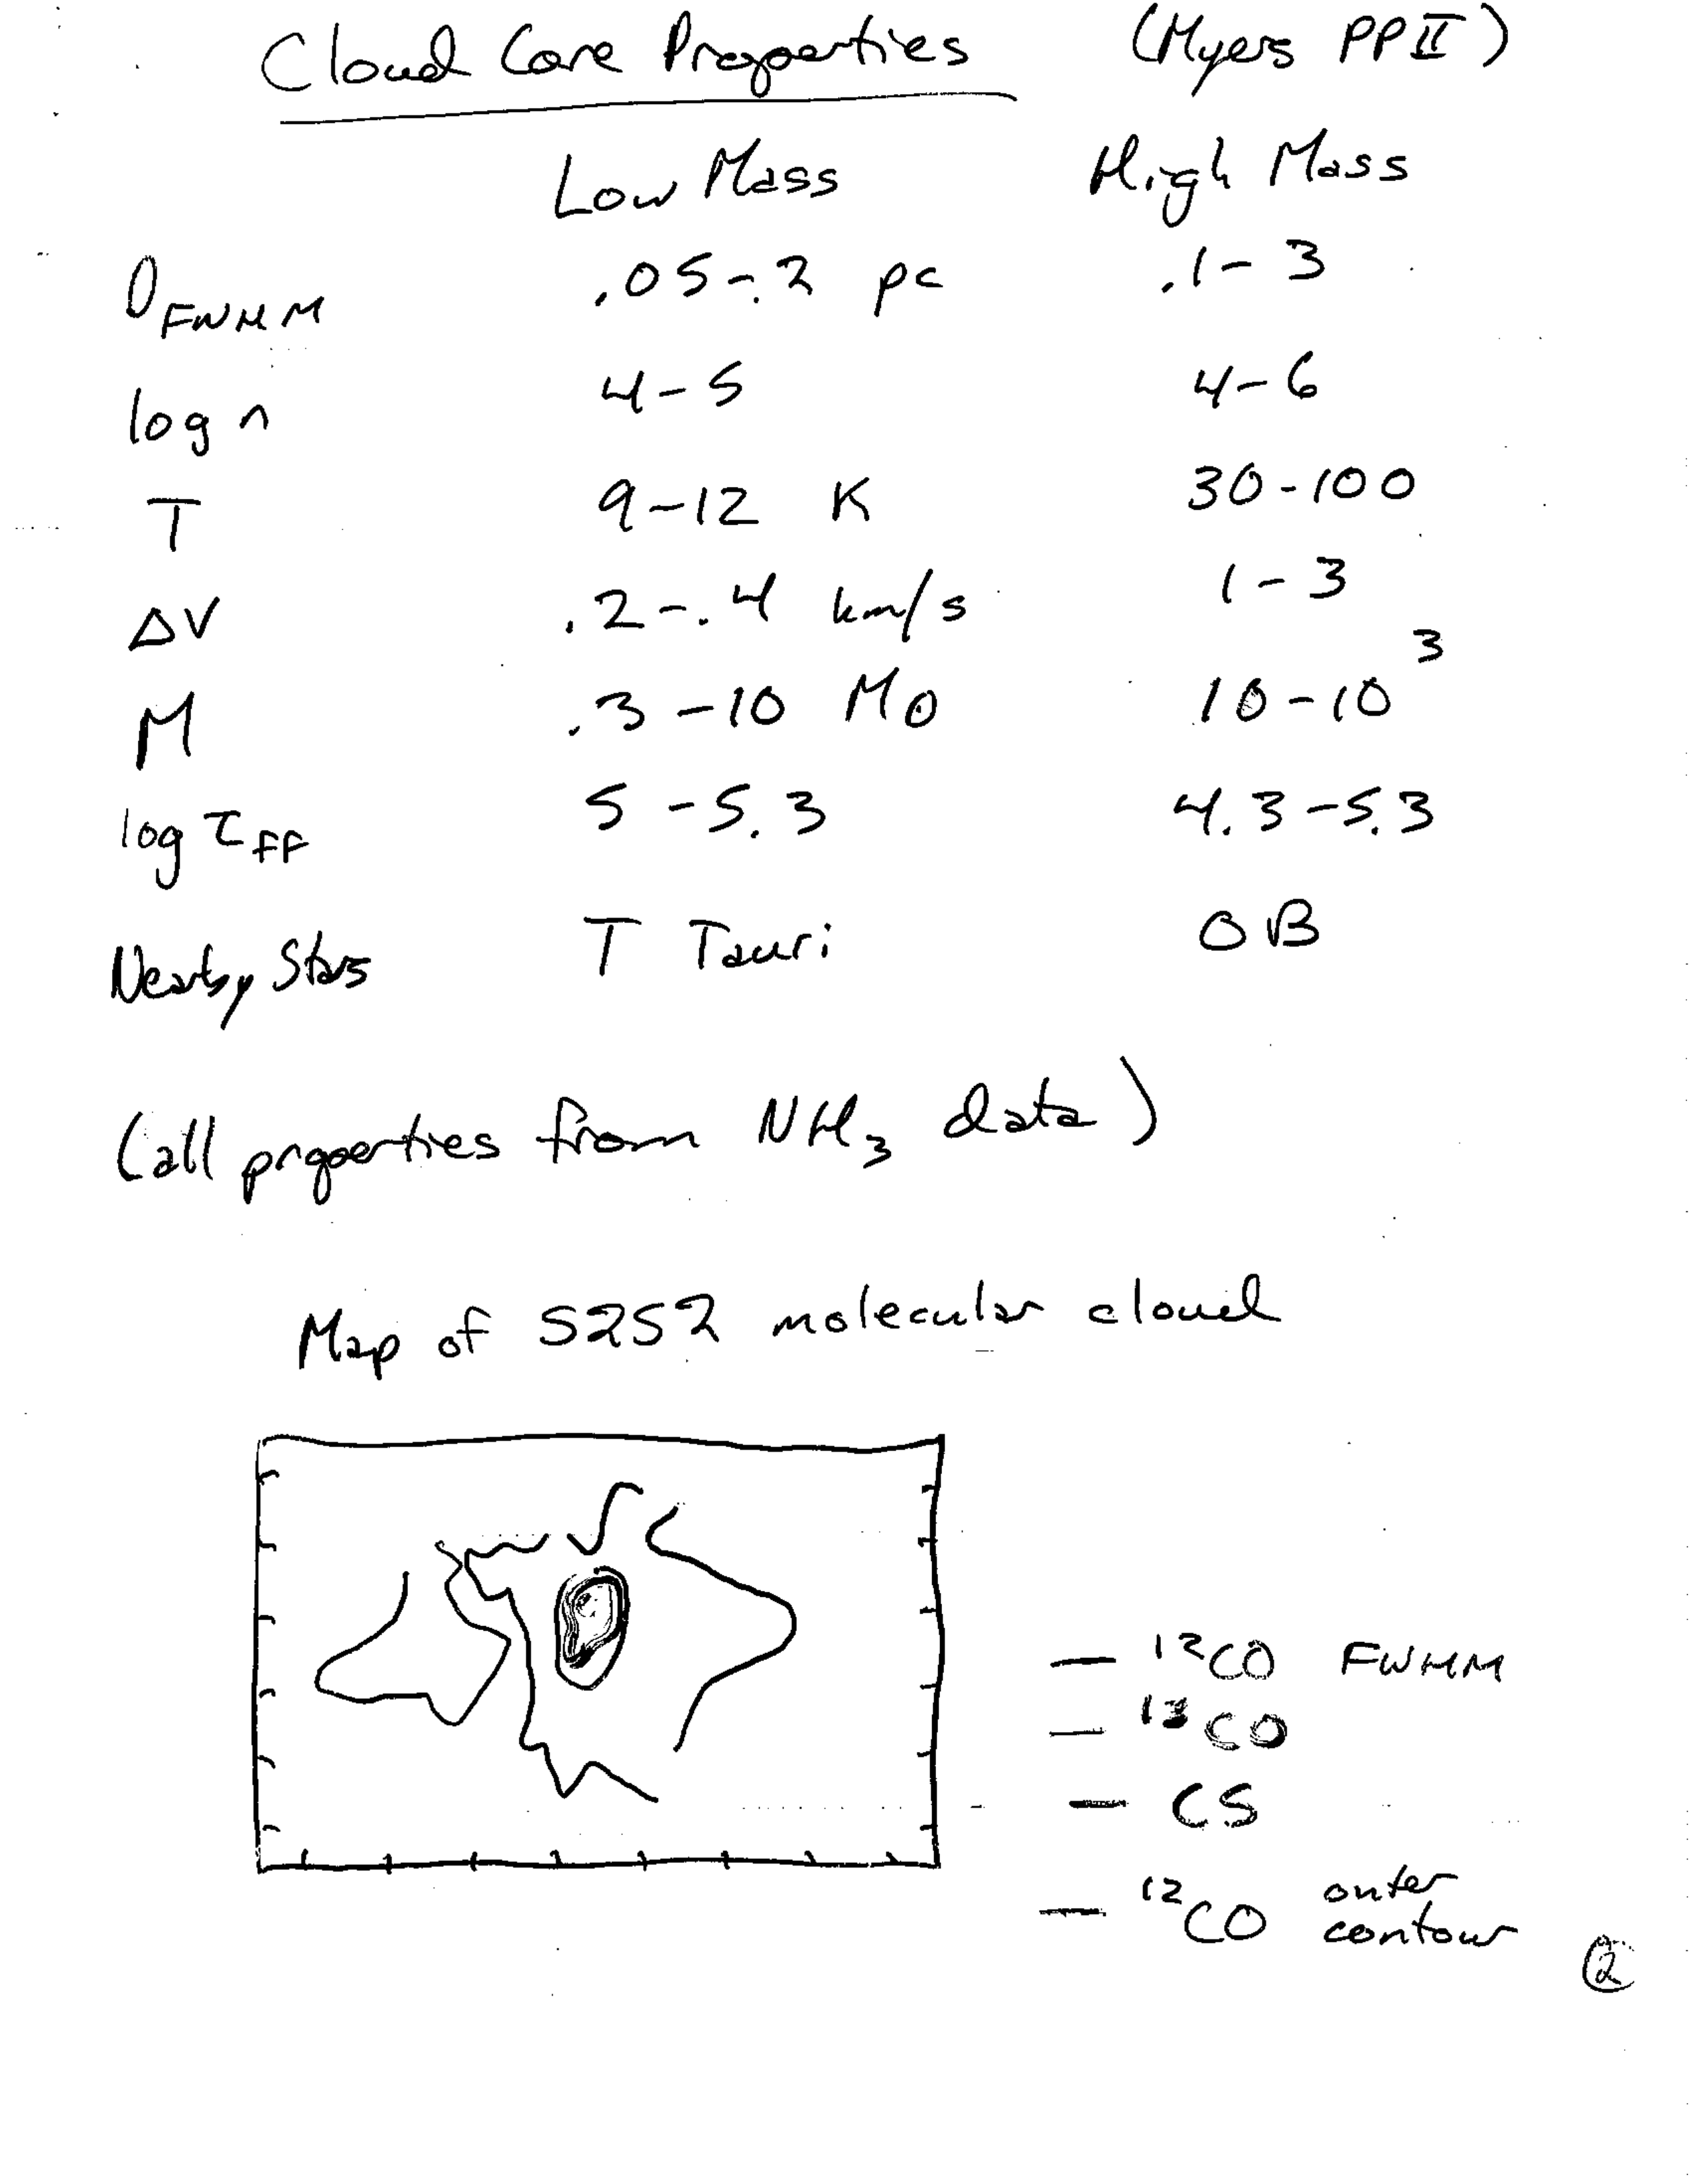 Cloud Core Properties (Myers PPII)
Low Mass High Mass
D_FWHM .05-.2 pc .1-3
log n 4-5 4-6
T 9-12 K 30-100
ΔV .2-.4 km/s 1-3
M .3-10 M⊙ 10-10³
log τ_FF 5-5.3 4.3-5.3
Nearby Stars T Tauri OB
(all properties from NH₃ data)
Map of S252 molecular cloud
— ¹²CO FWHM
— ¹³CO
— CS
— ¹²CO outer
contour
2